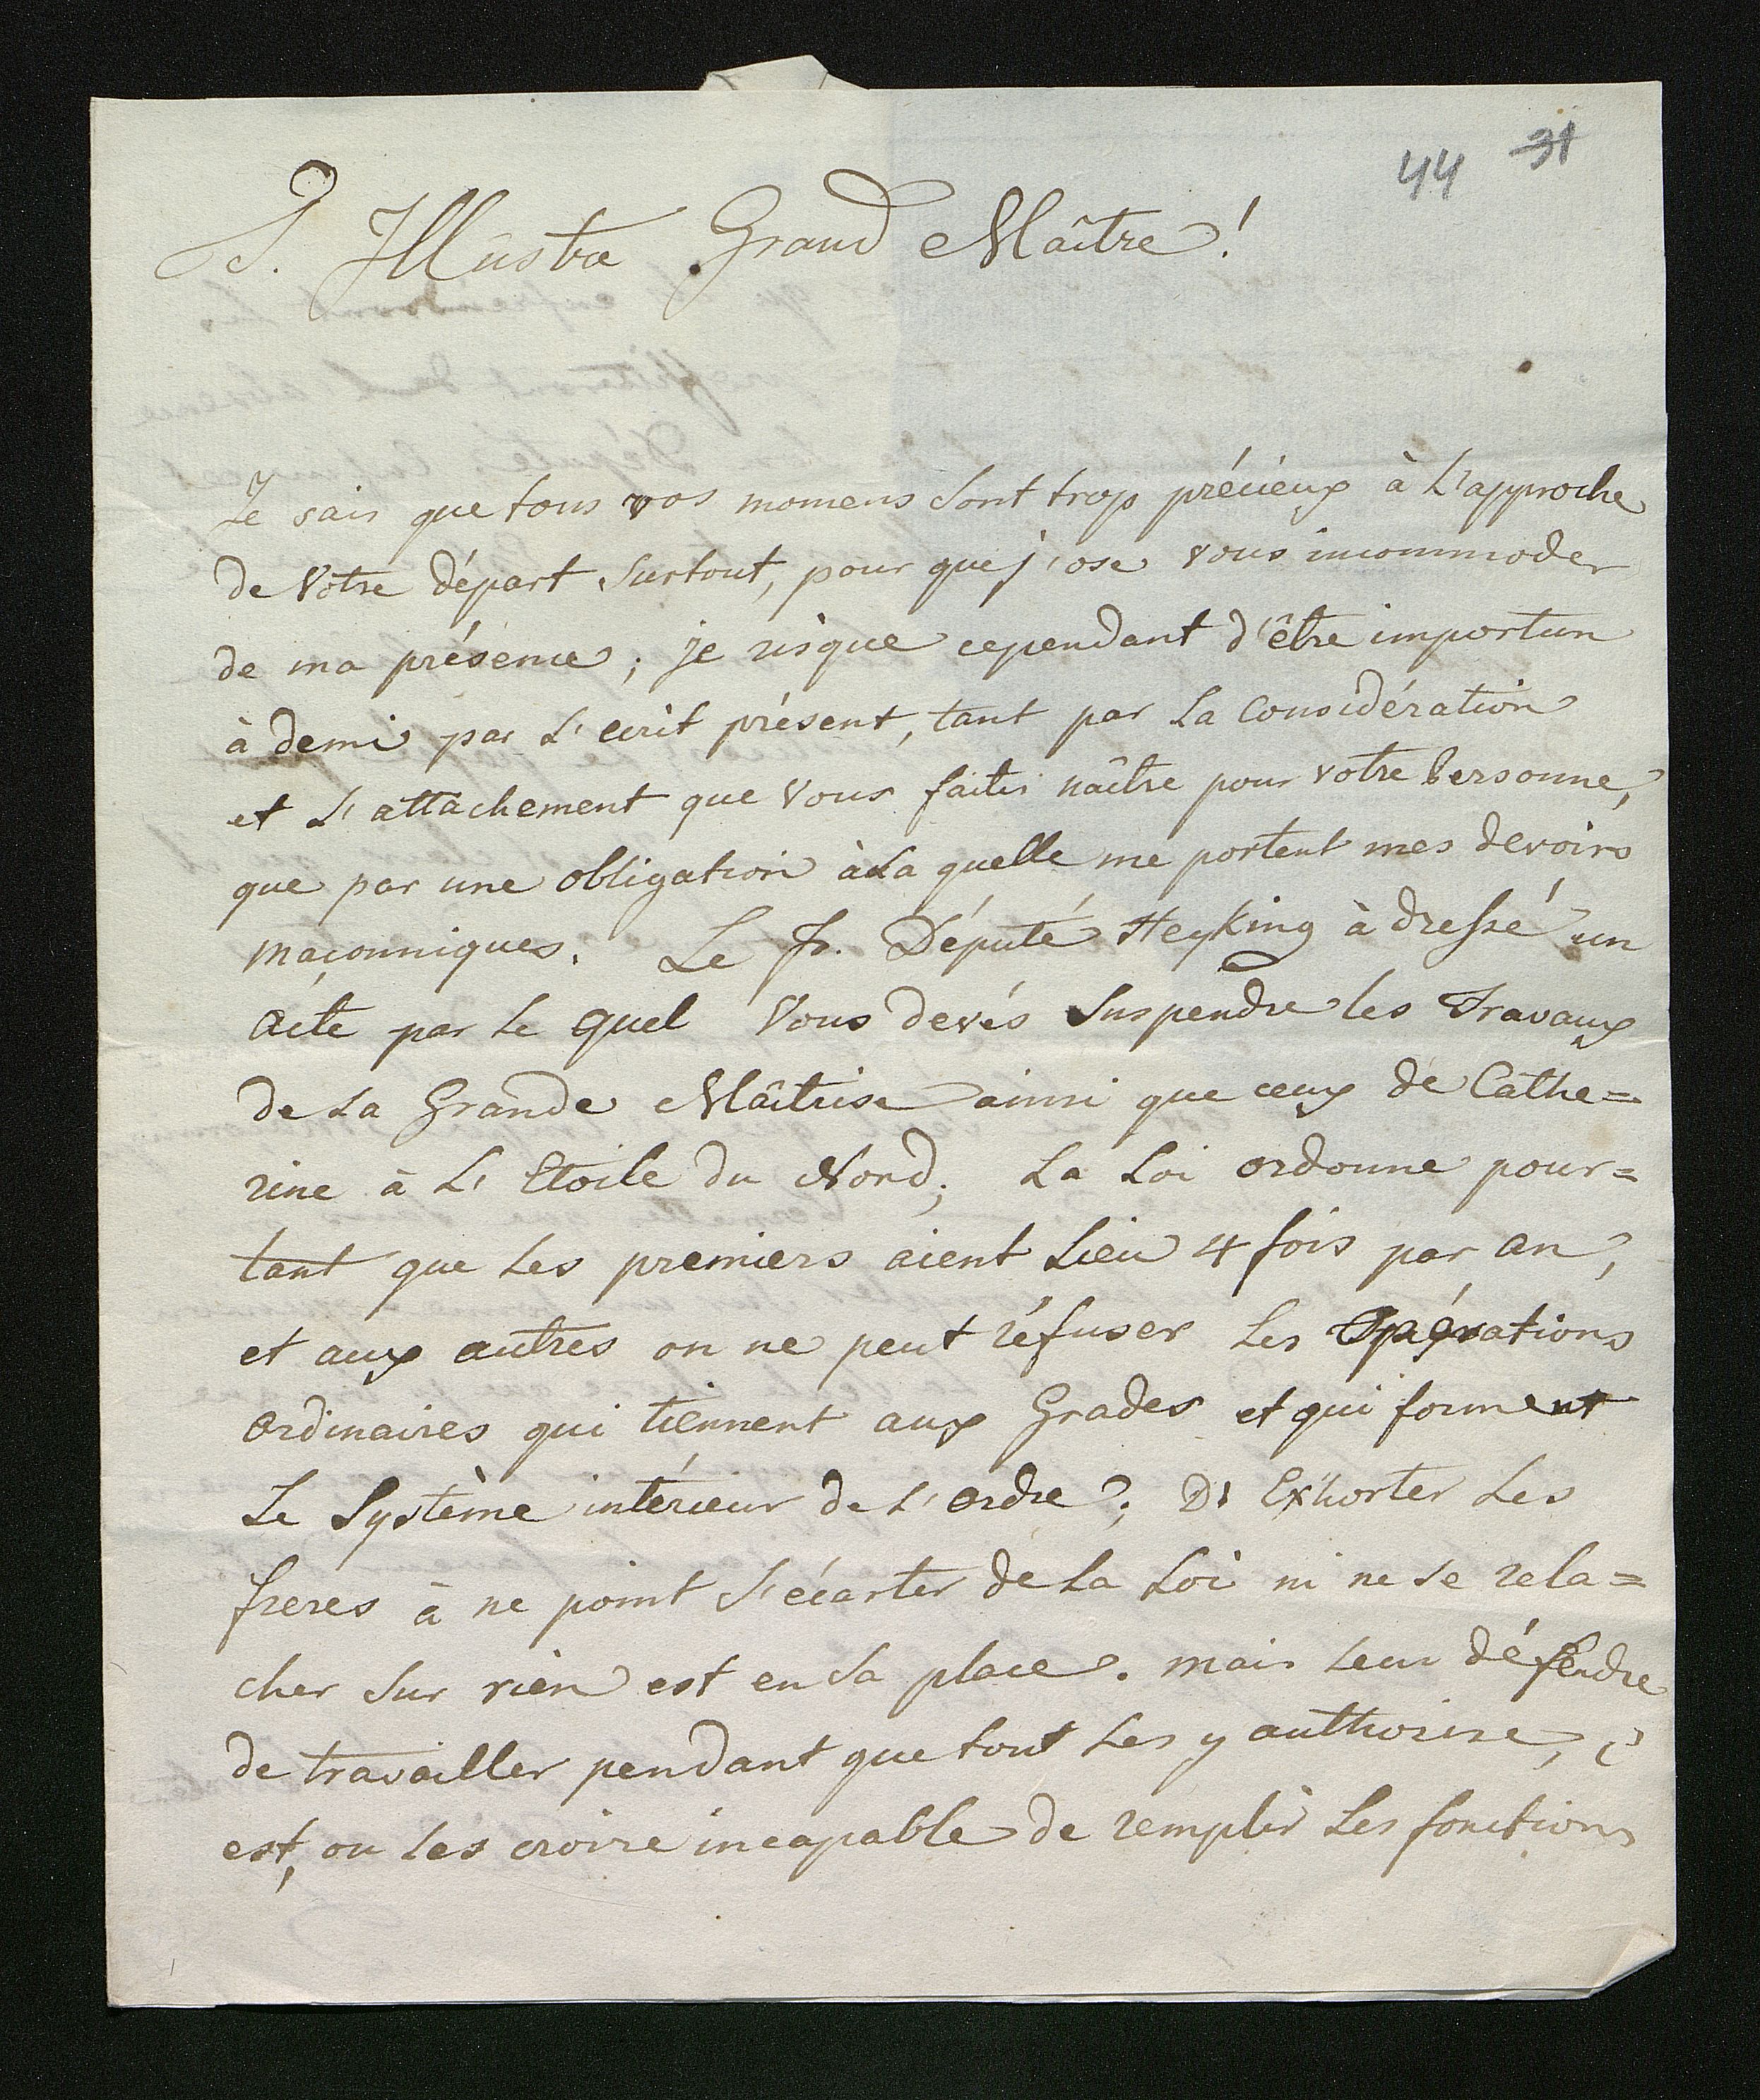 44 31
T. Illustre Grand Maître!
Je sais que tous vos momens sont trop précieux à L'approche
de Votre départ surtout, pour que j'ose vous incommoder
de ma présence; je risque cependant d'être importun
à demi par L'ecrit présent, tant par La Considération
et L'attachement que Vous faites naître pour votre Personne,
que par une obligation à La quelle me portent mes devoirs
maçonniques. Le fr. Député Heyking à dressé un
acte par Le quel Vous devés Suspendre les Travaux
de La Grande Maîtrise ainsi que ceux de Cathe=
rine à L'Etoile du Nord; La Loi ordonne pour=
tant que Les premiers aient Lieu 4 fois par an,
et aux autres on ne peut réfuser Les Opérations
Ordinaires qui tiennent aux Grades et qui forment
Le Système intérieur de L'ordre; D'Exhorter Les
freres à ne point S'écarter de La Loi ni ne se rela=
cher Sur rien est en sa place. mais Leur défendre
de travailler pendant que tout Les y authorise, c'
est, ou Les croire incapable de remplir Les fonctions